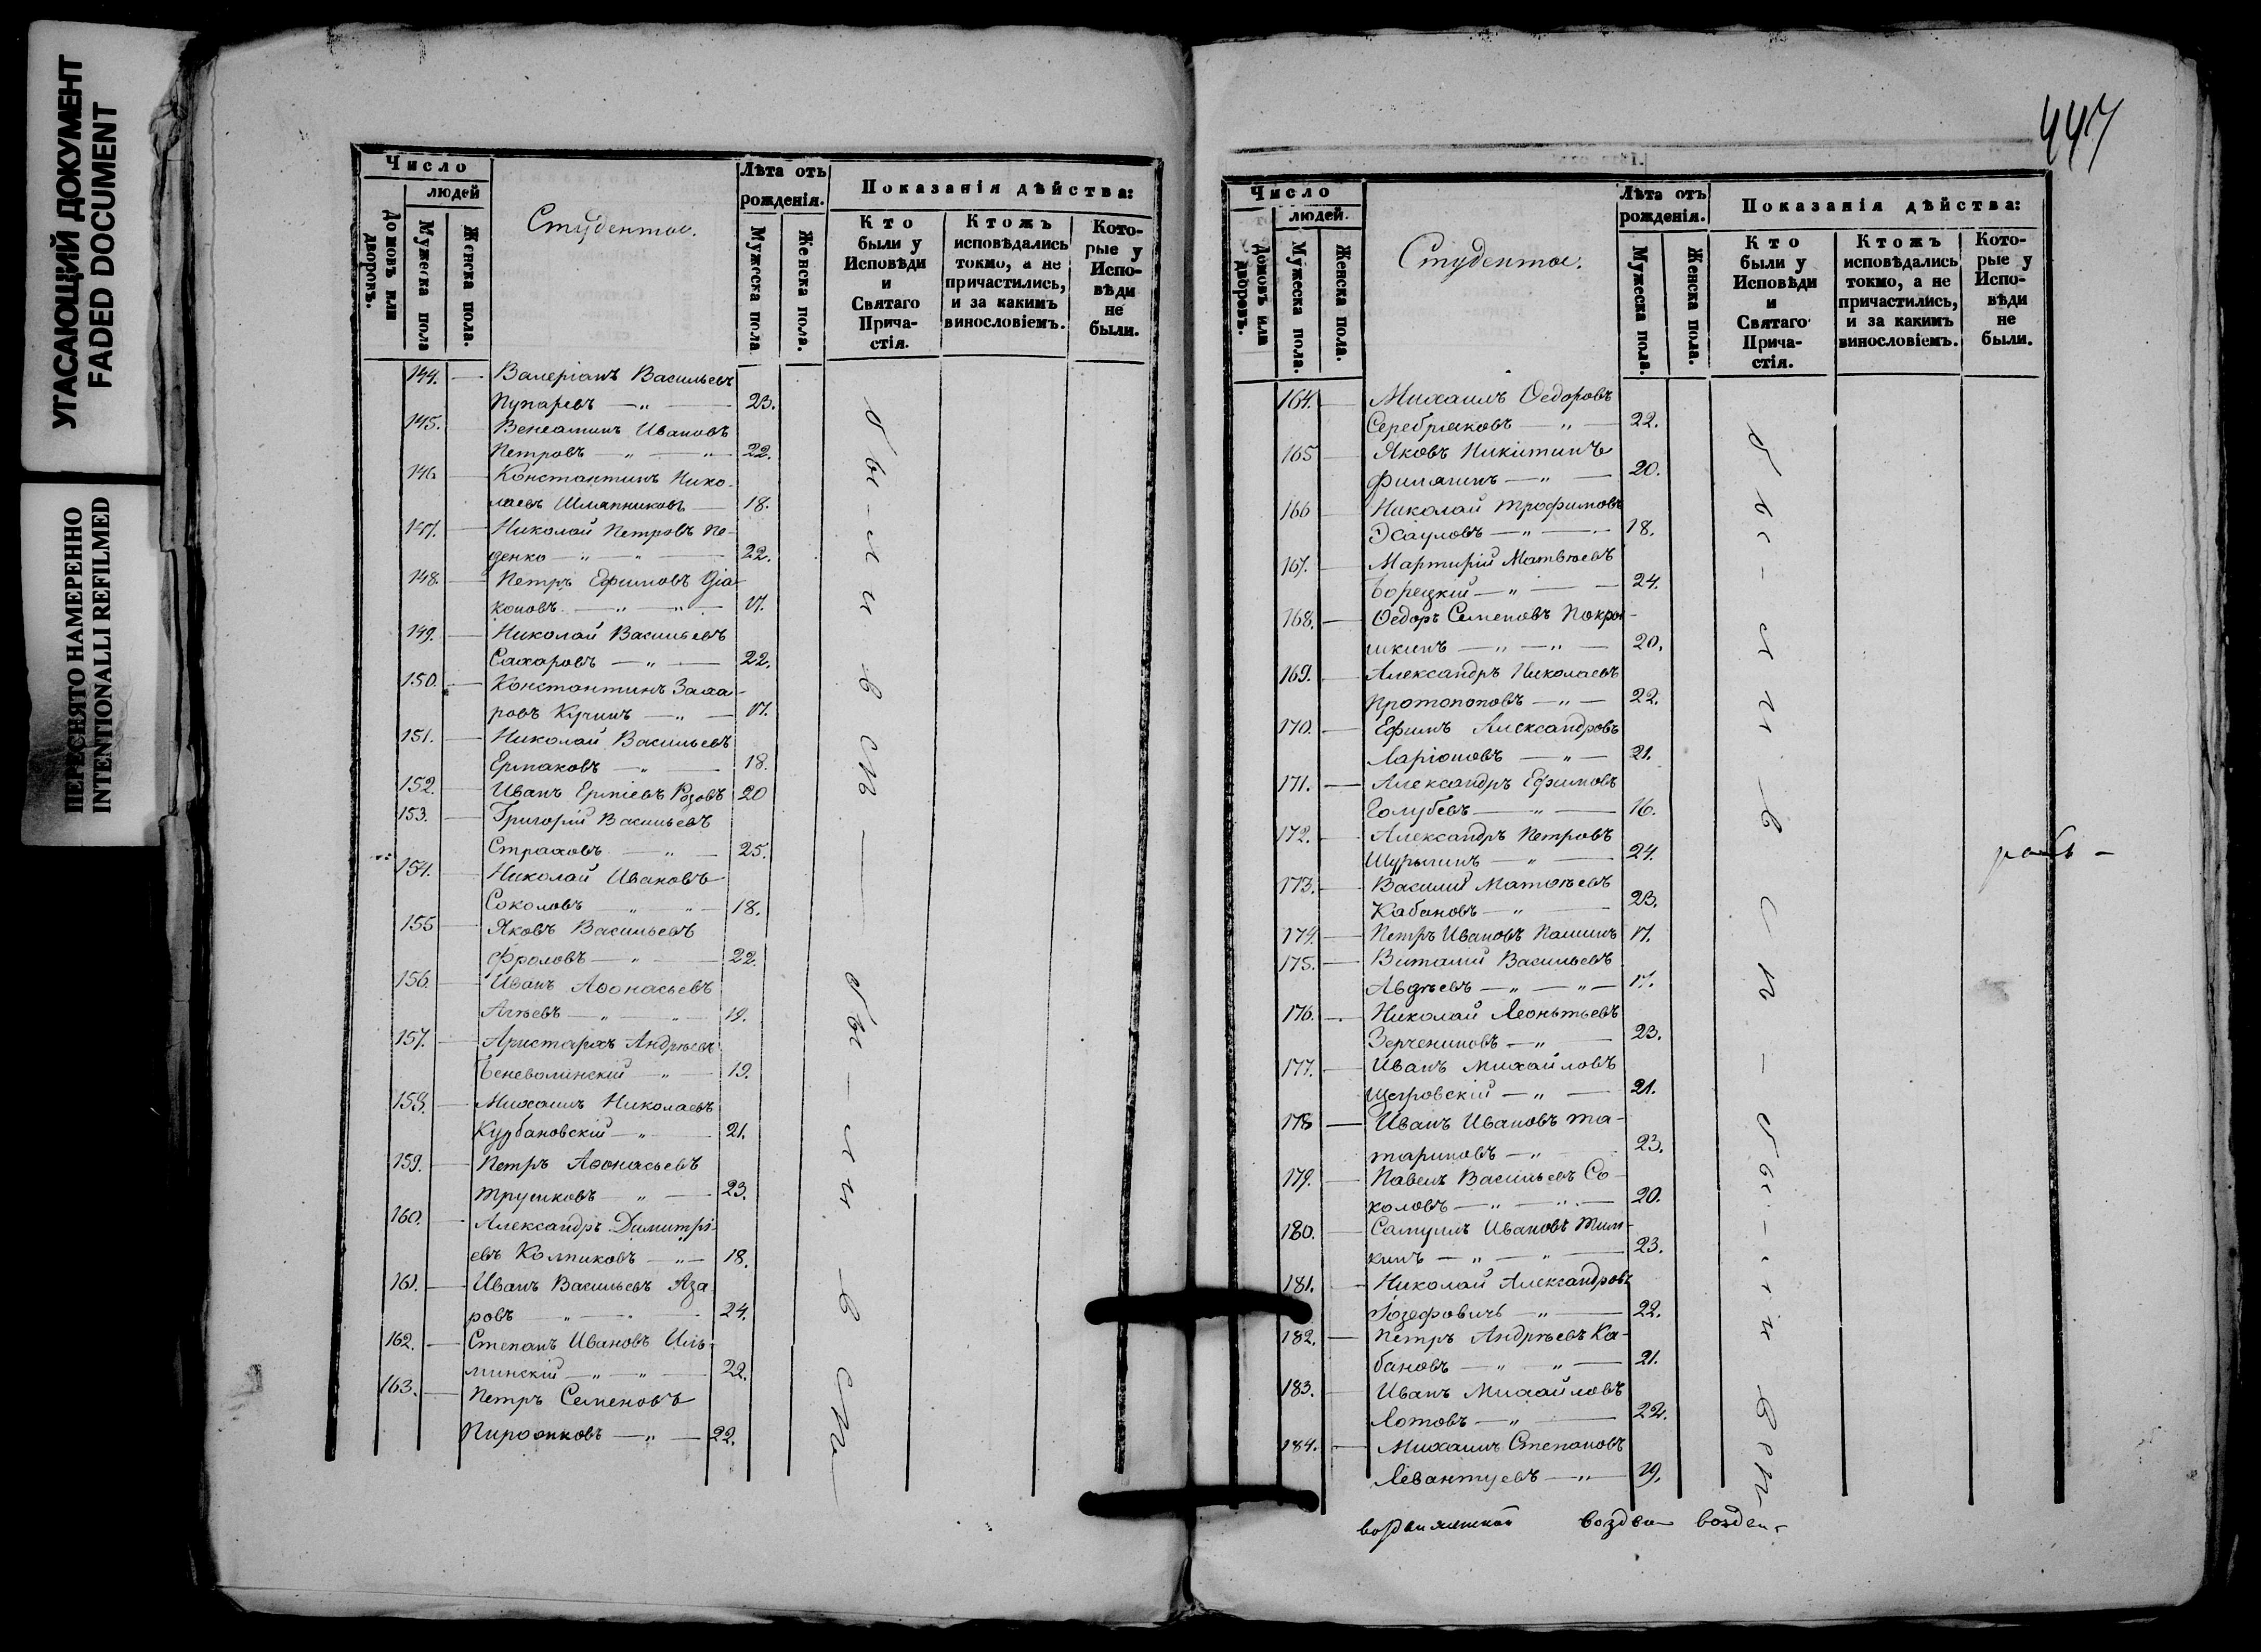 УГАСАЮЩИЙ ДОКУМЕНТ
FADED DOCUMENT
ПЕРЕСНЯТО НАМЕРЕННО
INTENTIONALLI REFILMED
Число
людей
Домовъ или дворовъ.
Мужеска пола
Женска пола.
Студенты.
Лѣта отъ рожденія.
Мужеска пола
Женска пола.
Показанія дѣйства:
Кто были у Исповѣди и Святаго Причастія.
Ктожъ исповѣдались токмо, а не причастились, и за какимъ винословіемъ.
Которые у Исповѣди не были.
144. — Валеріанъ Васильевъ
Пупаревъ — „ — 23.
145. — Веніаминъ Ивановъ
Петровъ — „ — „ — 22.
146 — Константинъ Нико-
лаевъ Шляпниковъ — 18.
147. — Николай Петровъ Пе-
денко — „ — „ — 22.
148. — Петръ Ефимовъ Дiа
коновъ — „ — „ — 17.
149. — Николай Васильевъ
Сахаровъ — „ — 22.
150. — Константинъ Заха-
ровъ Кучинъ — „ — 17.
151. — Николай Васильевъ
Ермаковъ — „ — 18.
152. — Иванъ Ерміевъ Розовъ 20
153. — Григорій Васильевъ
Страховъ — „ — 25.
154. — Николай Ивановъ
Соколовъ — „ — „ — 18.
155 — Яковъ Васильевъ
Фроловъ — „ — 22.
156. — Иванъ Аѳонасьевъ
Агѣевъ — „ — „ — 19.
157. — Аристархъ Андрѣевъ
Беневолинскій — „ — 19.
158. — Михаилъ Николаевъ
Курбановскій — „ — 21.
159. — Петръ Аѳонасьевъ
Трушковъ — „ — 23.
160. — Александръ Димитрі-
евъ Колпиковъ — „ — 18.
161. — Иванъ Васильевъ Аза
ровъ — „ — „ — 24.
162. — Степанъ Ивановъ Иль-
минскій — „ — „ — 22.
163. — Петръ Семеновъ
Пирожковъ — „ — 22.
447
Число
людей.
Домовъ или дворовъ.
Мужеска пола.
Женска пола.
Студенты.
Лѣта отъ рожденія.
Мужеска пола.
Женска пола.
Показанія дѣйства:
Кто были у Исповѣди и Святаго Причастія.
Ктожъ исповѣдались токмо, а не причастились, и за какимъ винословіемъ.
Которые у Исповѣди не были.
164. — Михаилъ Ѳедоровъ
Серебряковъ — „ — 22.
165 — Яковъ Никитинъ
Филянинъ — „ — 20.
166 — Николай Трофимовъ
Эсауловъ — „ — 18.
167. — Мартирій Матвѣевъ
Борецкій — „ — 24.
168. — Ѳедоръ Семеновъ Покры-
шкинъ — „ — „ — 20.
169. — Александръ Николаевъ
Протопоповъ — „ — 22.
170. — Ефимъ Александровъ
Ларіоновъ — „ — 21.
171. — Александръ Ефимовъ
Голубевъ — „ — 16.
172. — Александръ Петровъ
Шурыгинъ — „ — 24.
173. — Василій Матвѣевъ
Кабановъ — „ — 23.
174. — Петръ Ивановъ Пашинъ 17.
175. — Виталій Васильевъ
Авдѣевъ — „ — „ — 17.
176. — Николай Леонтьевъ
Зерчениновъ — „ — 23.
177. — Иванъ Михайловъ
Щегровскій — „ — 21.
178 — Иванъ Ивановъ Та-
тариновъ — „ — 23.
179. — Павелъ Васильевъ Со-
коловъ — „ — „ — 20.
180. — Самуилъ Ивановъ Тим-
кинъ — „ — „ — 23.
181. — Николай Александровъ
Юзефовичъ — „ — 22.
182. — Петръ Андрѣевъ Ка-
бановъ — „ — „ — 21.
183. — Иванъ Михайловъ
Лотовъ — „ — 22.
184. — Михаилъ Степановъ
Левантуевъ — „ — 19.